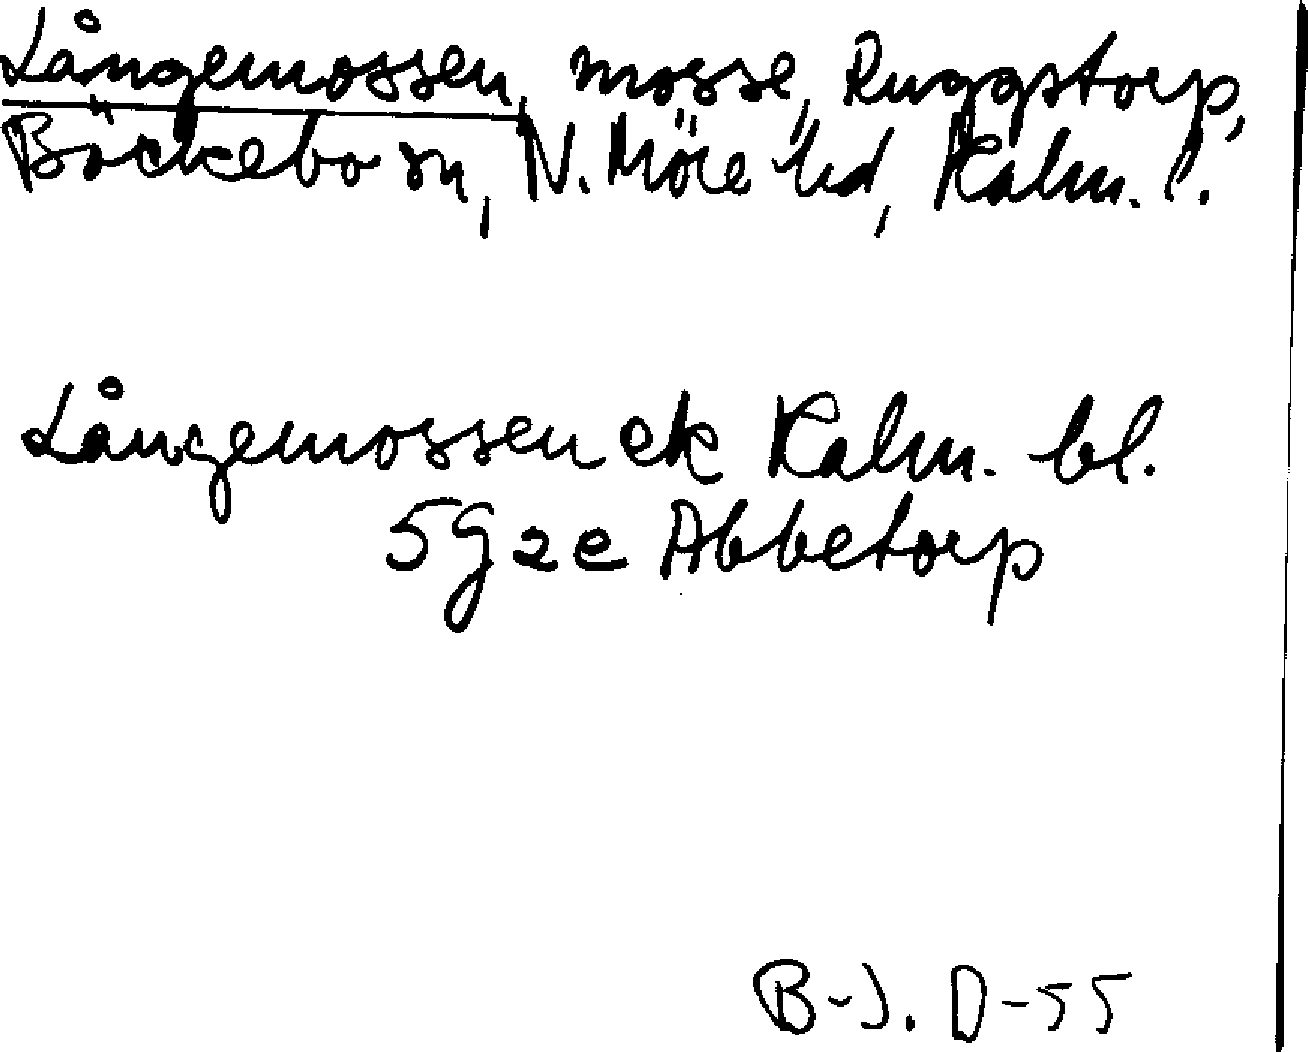 Långemossen, mosse, Ruggstorp,
Böckebo sn, N. Möre hd, Kalm. l.
Långemossen ek Kalm. bl.
5g2e Abbetorp
B-J. D-55